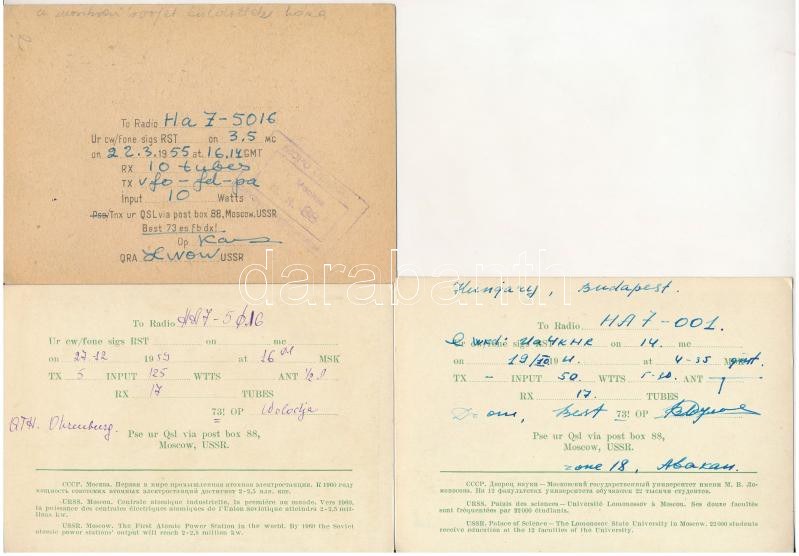 a
To Radio Ha 7-5016
Ur cw/fone sigs RST on 3.5 mc
on 22.3.1955 at 16.14 GMT
RX 10 tubes
TX vfo-fd-pa
Input 10 Watts
Pse/Tnx ur QSL via post box 88, Moscow, USSR
Best 73 es fb dx!
Op
QRA Lwow USSR
88
darabanth
To Radio HA7-5016
Ur cw/fone sigs RST on mc
on 27-12 1959 at 16 MSK
TX 5 INPUT 125 WTTS ANT 1/2 λ
RX 17 TUBES
73! OP Wolodja
QTH. Ohrenburg.
Pse ur Qsl via post box 88,
Moscow, USSR.
СССР. Москва. Первая в мире промышленная атомная электростанция. К 1960 году
мощность советских атомных электростанций достигнет 2-2,5 млн. квт.
URSS. Moscou. Centrale atomique industrielle, la première au monde. Vers 1960,
la puissance des centrales électriques atomiques de l'Union soviétique atteindra 2-2,5 mil-
lions kw.
USSR. Moscow. The First Atomic Power Station in the world. By 1960 the Soviet
atomic power stations' output will reach 2-2,5 million kw.
Hungary, Budapest.
To Radio HA7-001.
Ur cw/fone sigs RST on 14. mc
on 19/ 19 at 4-35
TX - INPUT 50. WTTS ANT
RX 17. TUBES
Best 73! OP
Pse ur Qsl via post box 88,
Moscow, USSR.
zone 18, Абакан.
СССР. Дворец науки — Московский государственный университет имени М. В. Ло-
моносова. На 12 факультетах университета обучаются 22 тысячи студентов.
URSS. Palais des sciences — Université Lomonossov à Moscou. Ses douze facultés
sont fréquentées par 22 000 étudiants.
USSR. Palace of Science — The Lomonosov State University in Moscow. 22 000 students
receive education at the 12 faculties of the University.